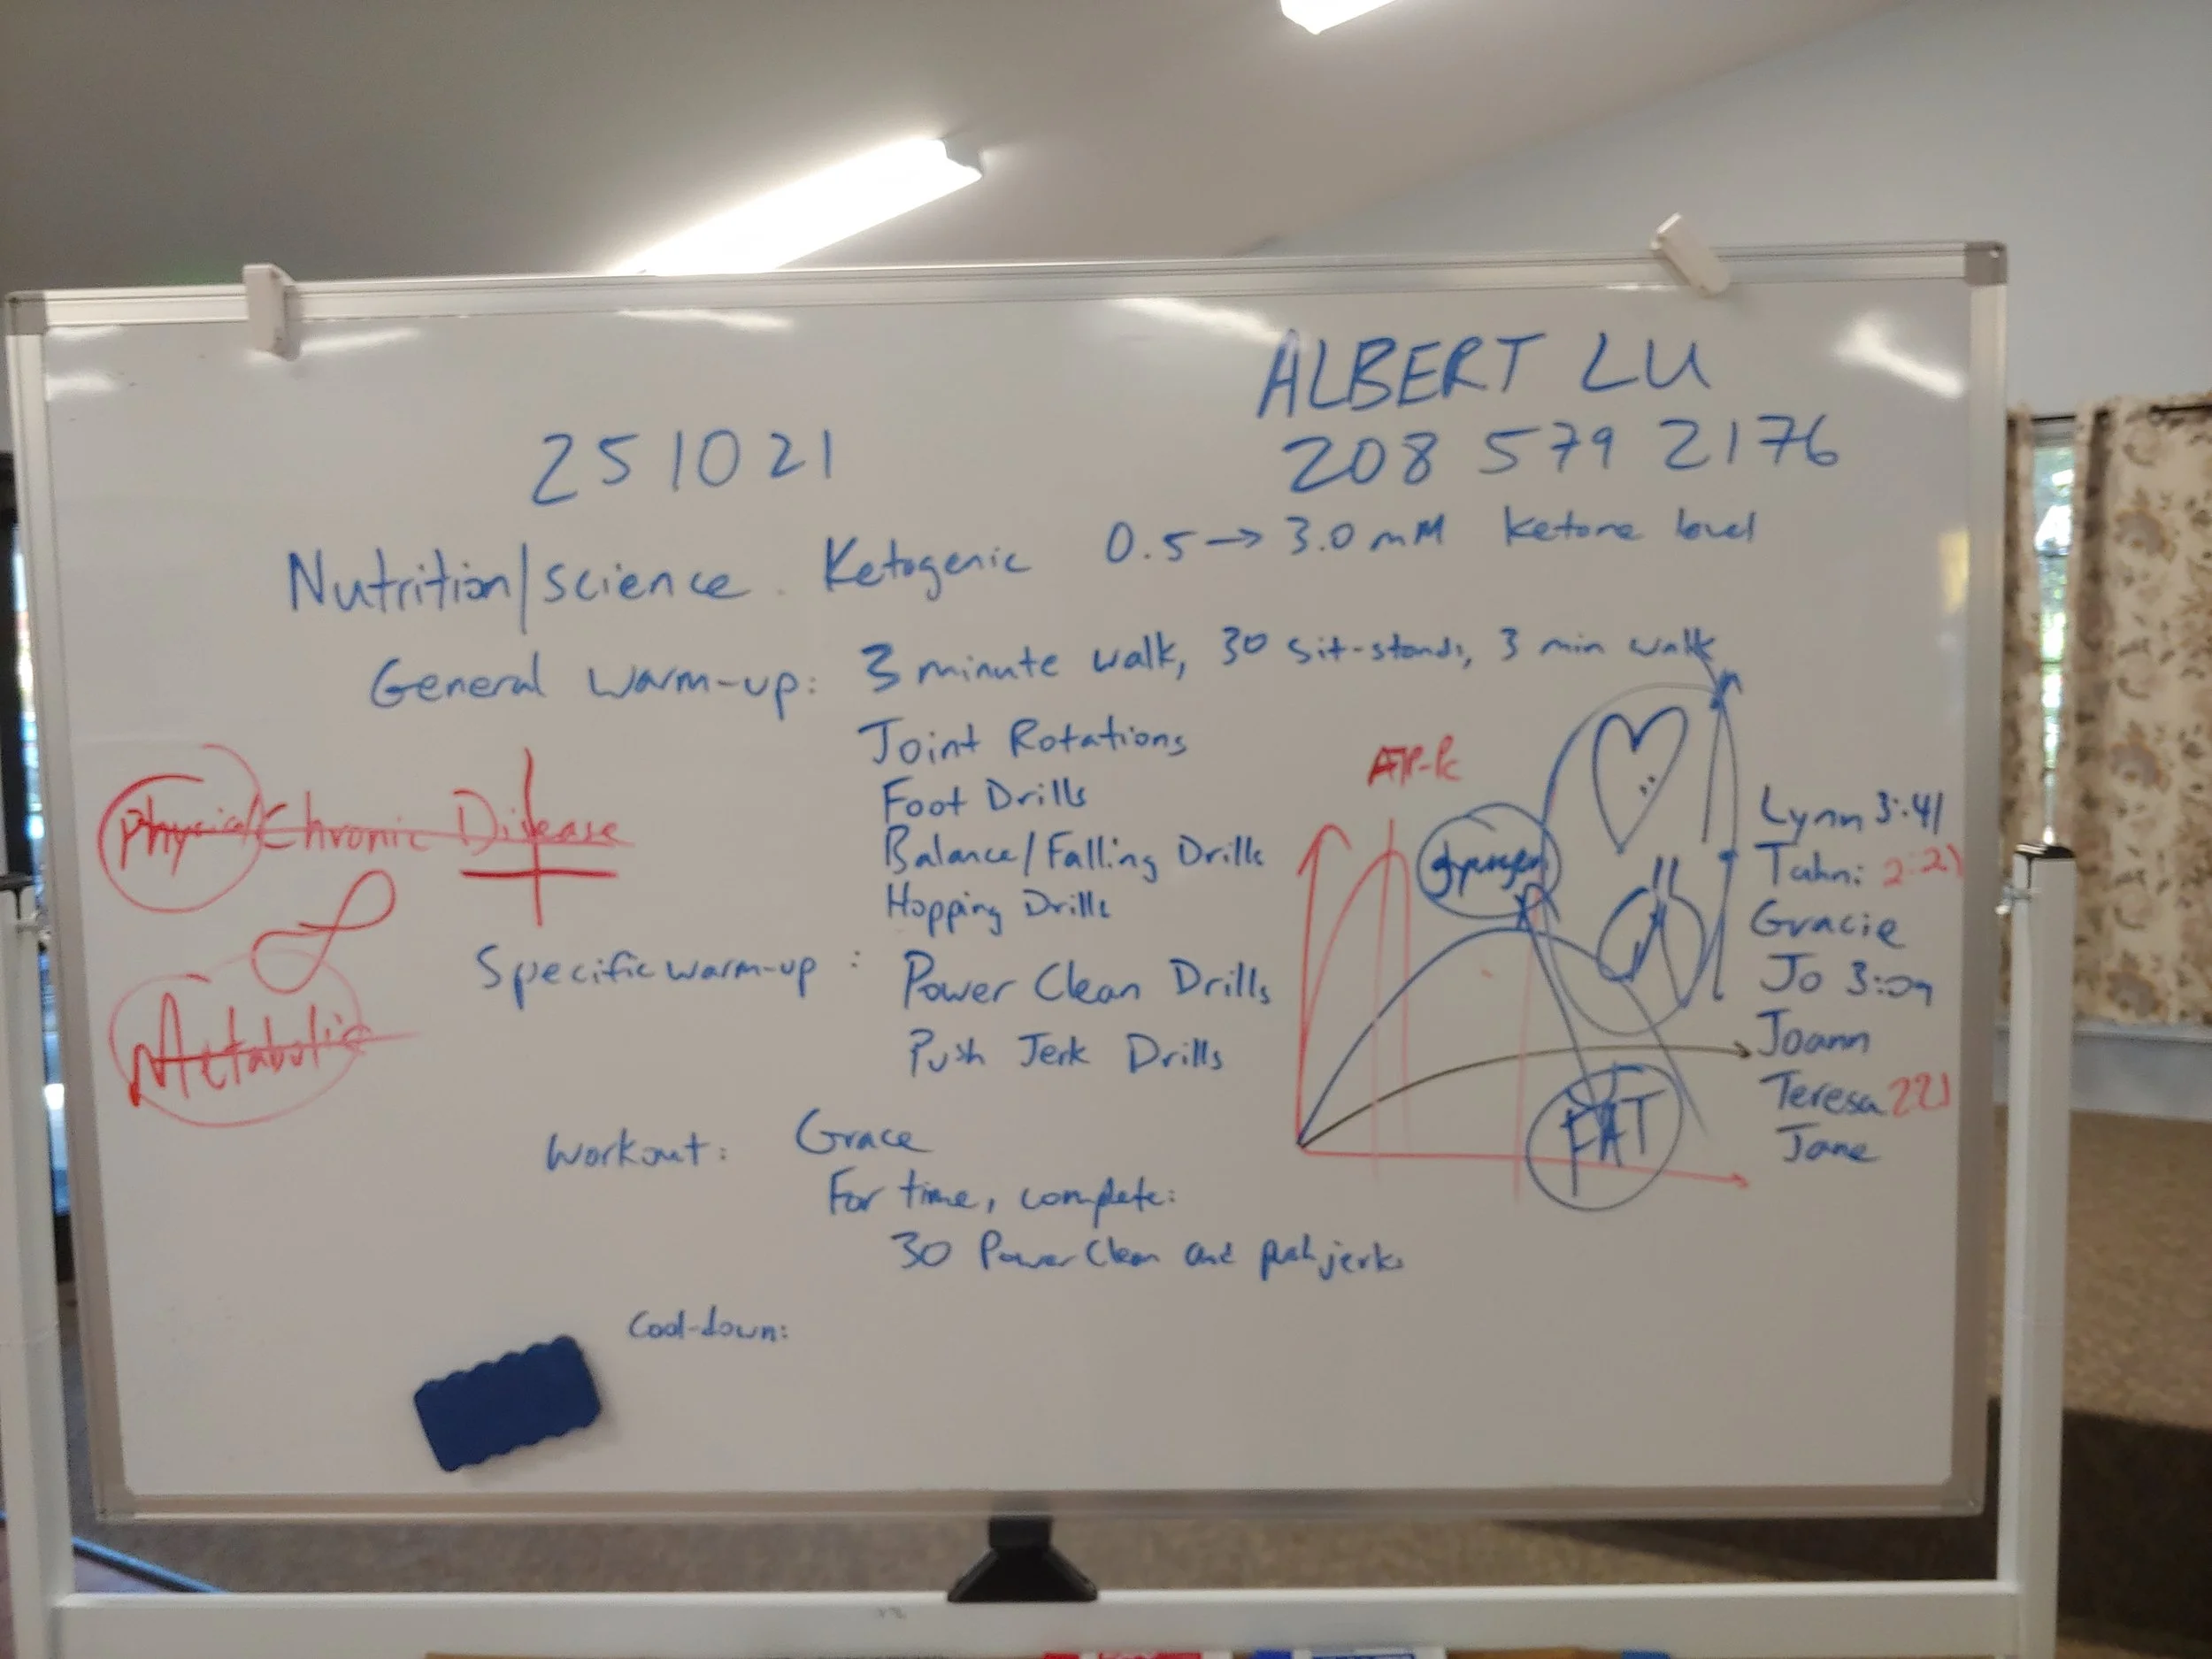 ALBERT LU
251021
208 579 2176
Nutrition/science. Ketogenic 0.5 → 3.0 mM Ketone level
General warm-up: 3 minute walk, 30 sit-stands, 3 min walk
Joint Rotations
Foot Drills
Balance/Falling Drills
Hopping Drills
Physical/Chronic Disease
Metabolic
Specific warm-up: Power Clean Drills
Push Jerk Drills
Workout: Grace
For time, complete:
30 Power Clean and push jerks
Cool-down:
ATP-Pc
FAT
Lynn 3:41
Tahni
Gracie
Jo 3:09
Joann
Teresa 221
Jane